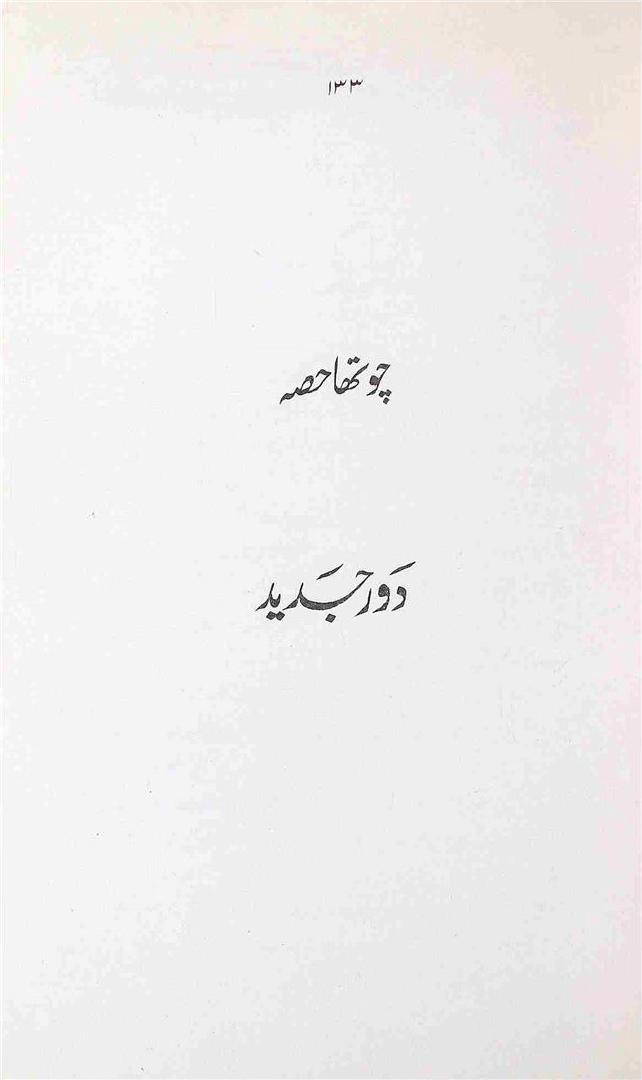 ۱۳۳
چوتھا حصہ
دَور جَدید